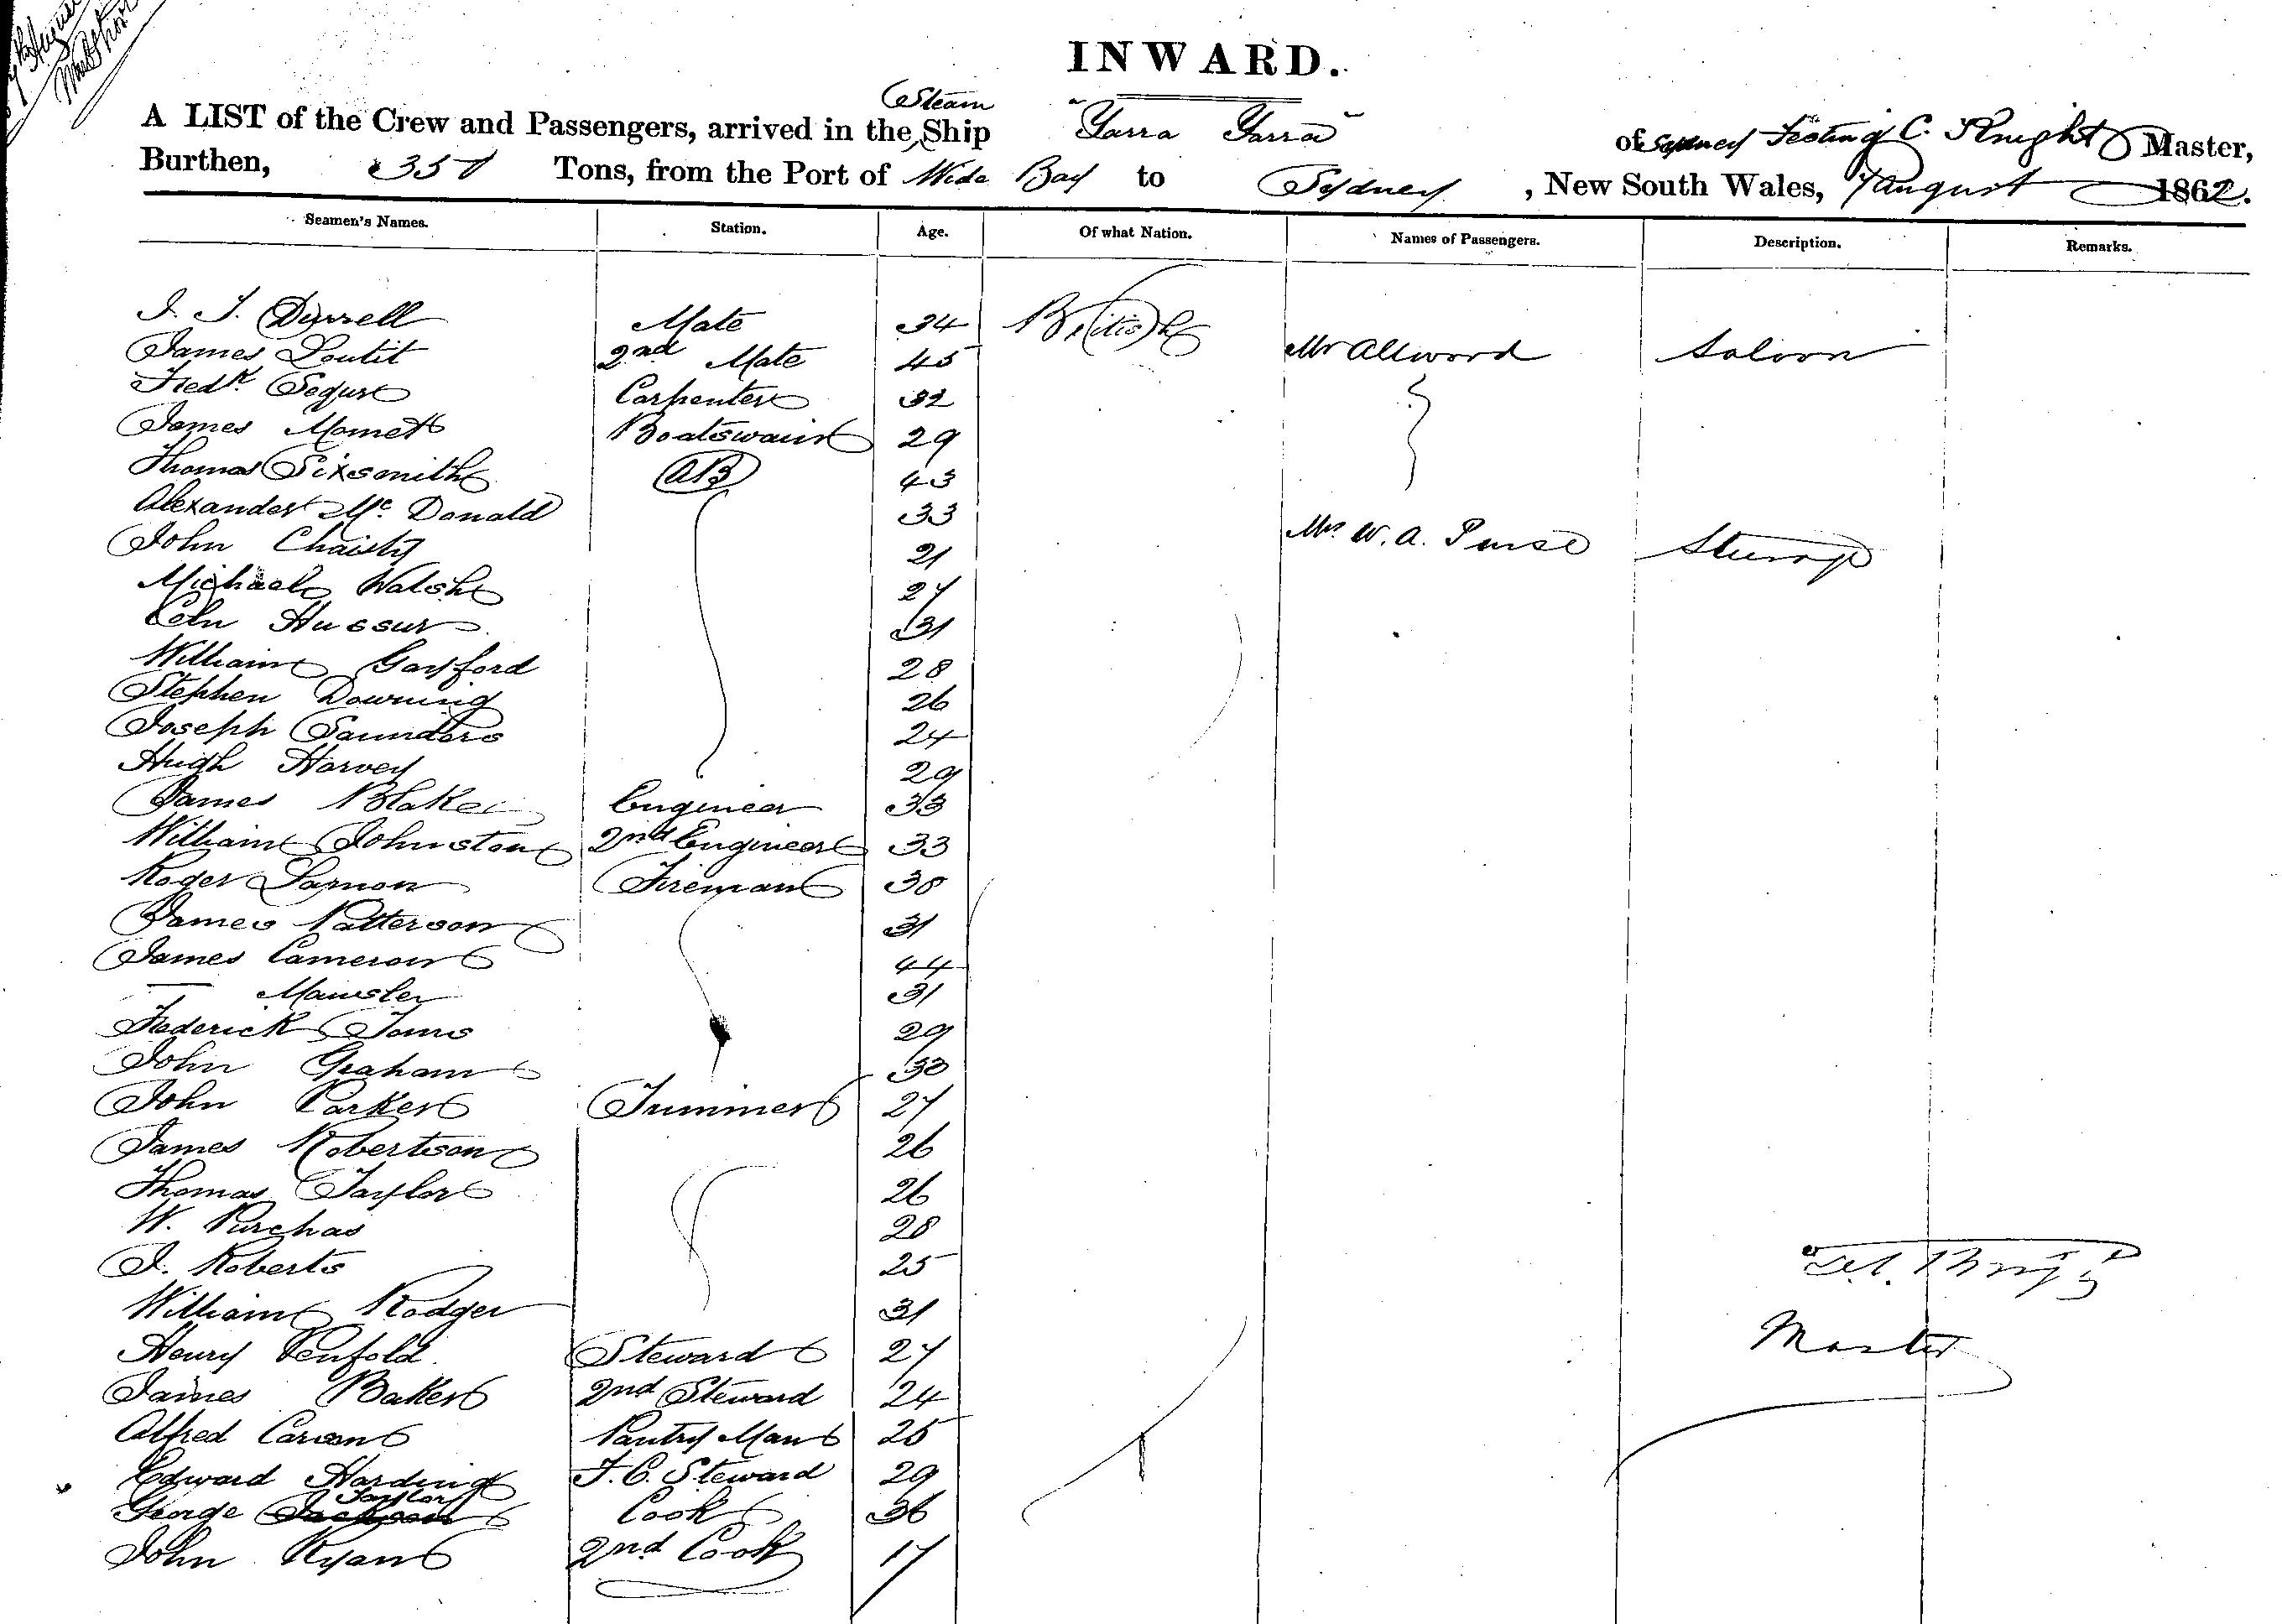 INWARD.
A LIST of the Crew and Passengers, arrived in the Steam Ship "Yarra Yarra" of Sydney C. Knight Master,
Burthen, 337 Tons, from the Port of Wide Bay to Sydney, New South Wales, 7 August 1862.
Seamen's Names. Station. Age. Of what Nation. Names of Passengers. Description. Remarks.
J. J. Mate 34 British
James Loutit 2nd Mate 45 Mr Allword Saloon
Fredk Segur Carpenter 32
James Momet Boatswain 29
Thomas Sixsmith AB 43
Alexander Mc. Donald 33
John Chaisty 21 W. A. Steerage
Michael Walsh 27
Hussur 31
William Gayford 28
Stephen Downing 26
Joseph Saunders 24
Hugh Harvey 29
James Blake Engineer 33
William Johnston 2nd Engineer 33
Roger Fireman 38
James Patterson 31
James Cameron 44
31
Frederick 29
John Graham 30
John Parker Trimmer 27
James Robertson 26
Thomas Taylor 26
W. Purchas 28
J. Roberts 25
William Rodger 31
Henry Penfold Steward 27 Master
James Baker 2nd Steward 24
Alfred Carson Pantry Man 25
Edward Harding F. C. Steward 29
George Taylor Cook 36
John Ryan 2nd Cook 17